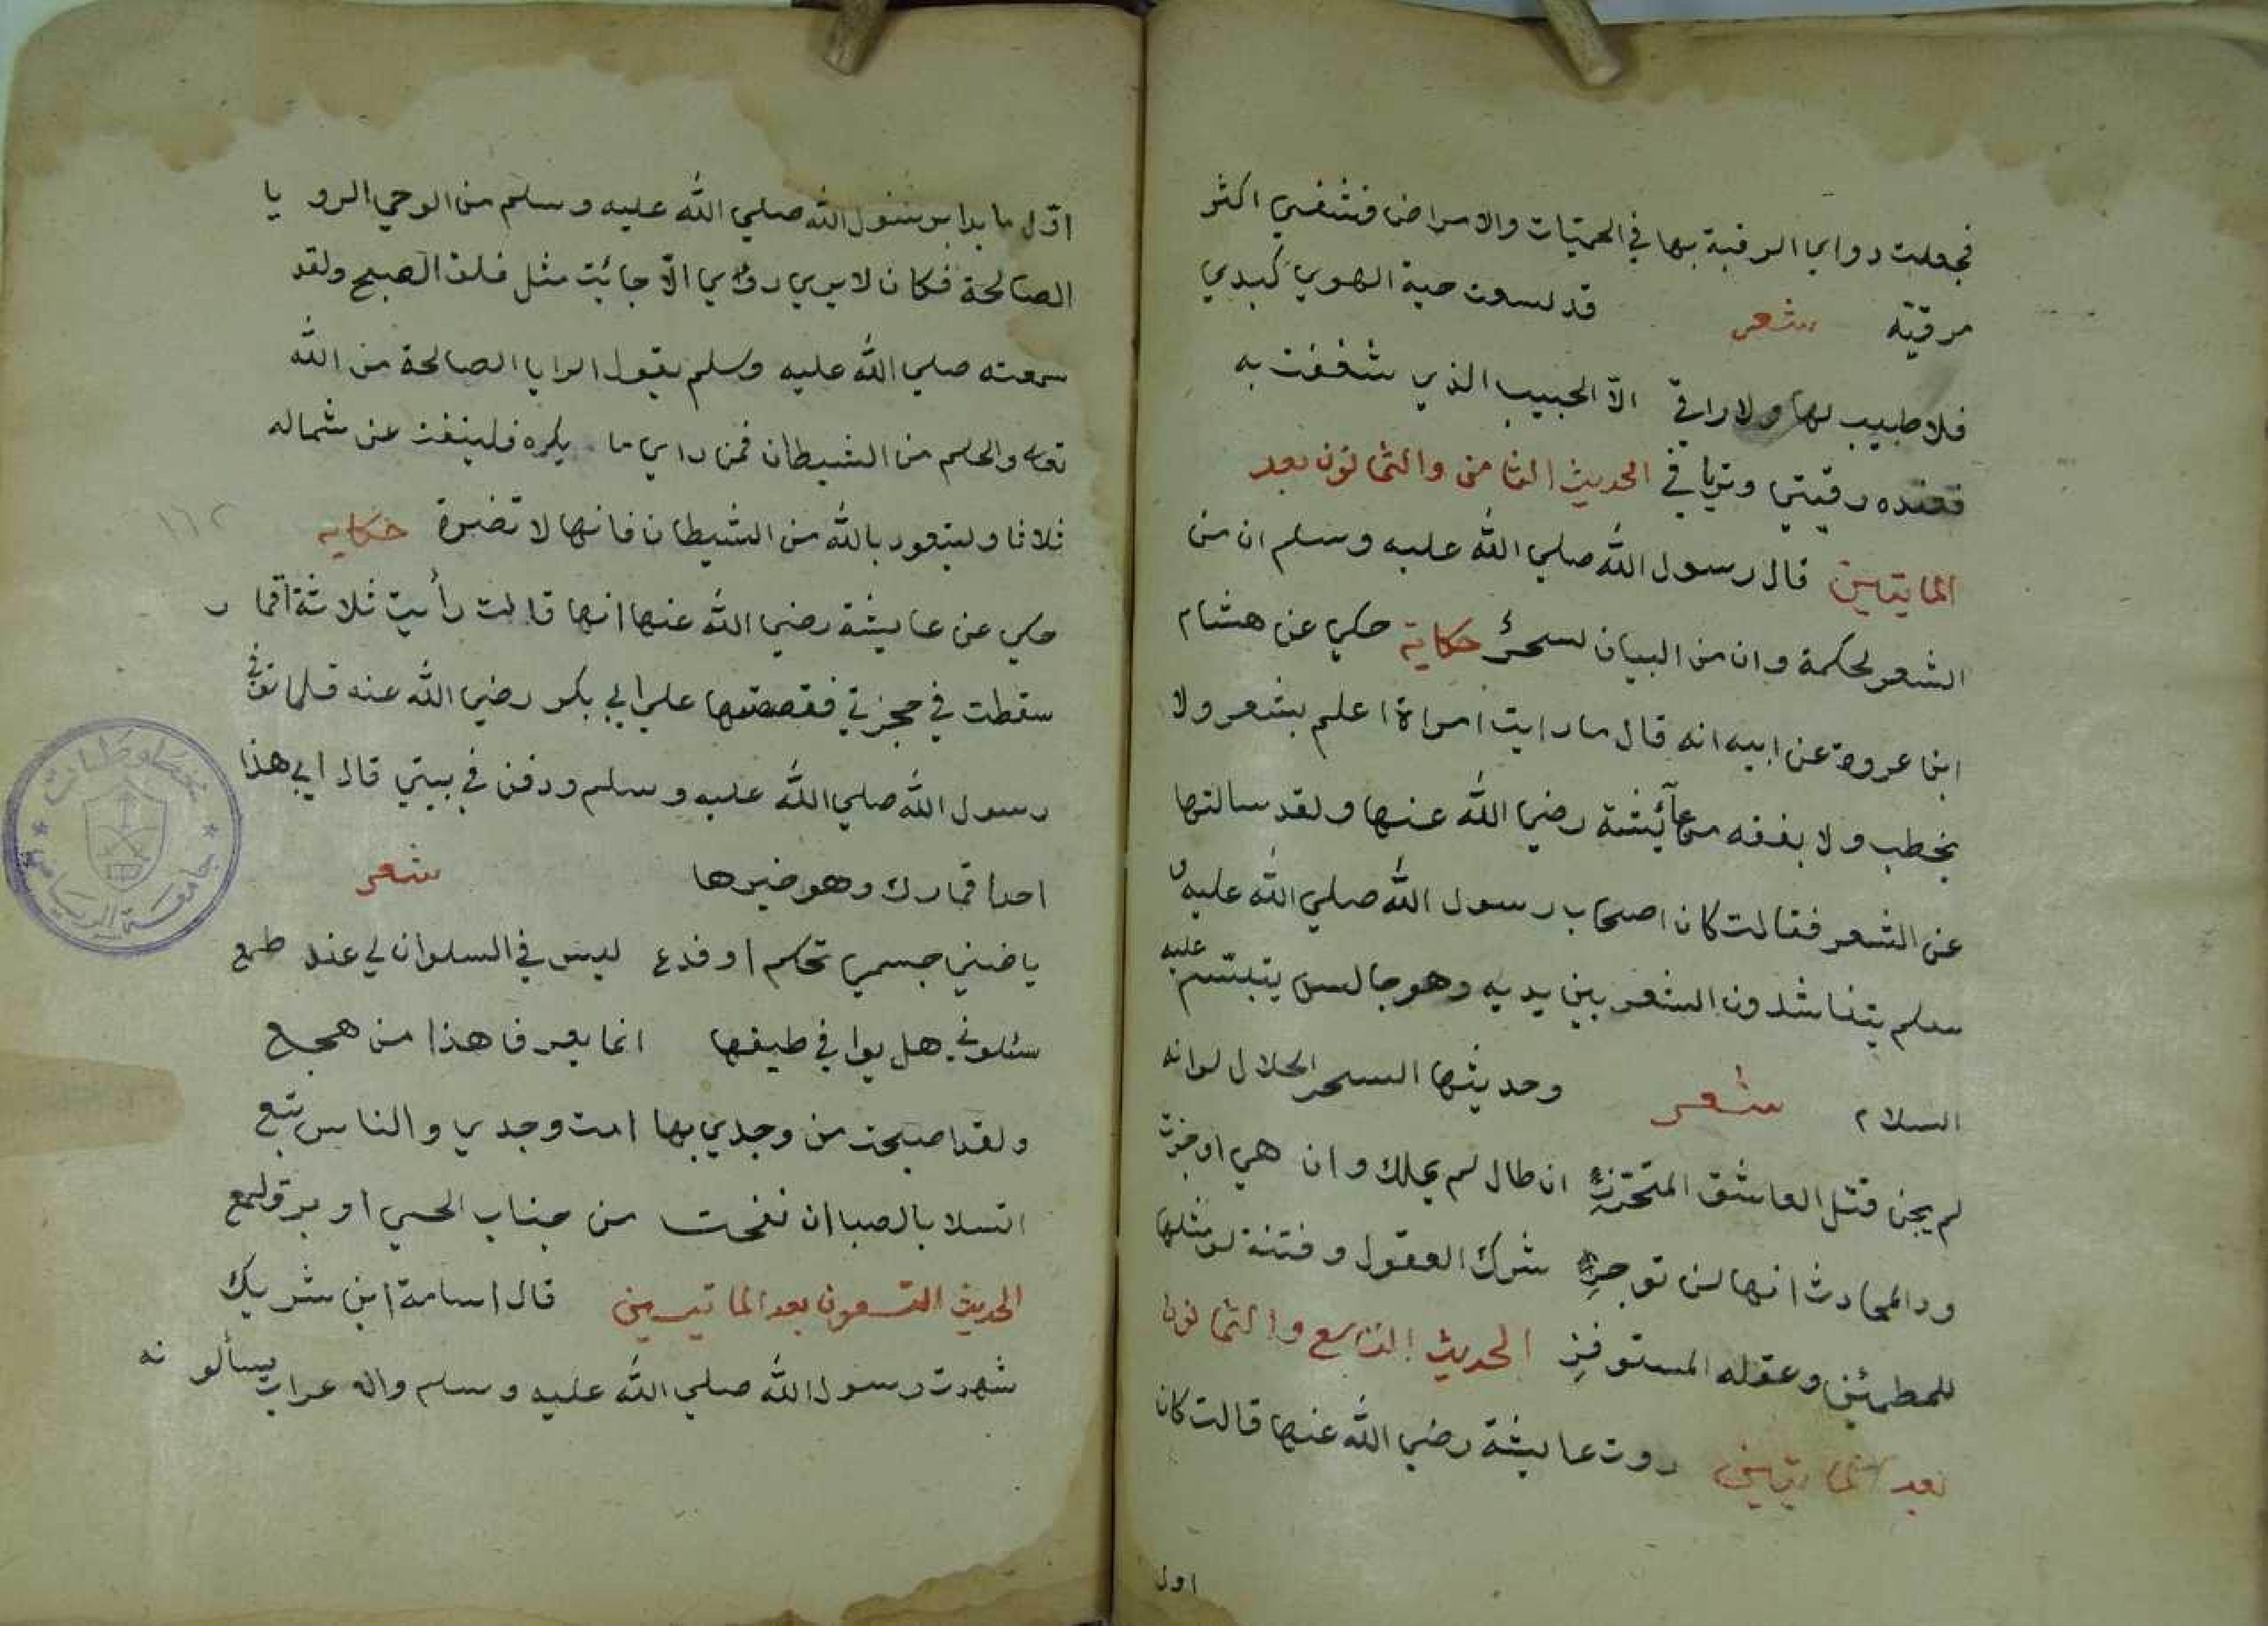 فجعلت دوايما الرقية بها في الحميات والامراض فشفي اكثر
مرقيته شعر قد لسعت حية الهوي كبدي
فلا طبيب لها ولا راقي الا الحبيب الذي شغفت به
فعنده رقيتي وترياقي الحديث الثامن والثمانون بعد
المايتين قال رسول الله صلي الله عليه وسلم ان من
الشعر لحكمة وان من البيان لسحر حكاية حكي عن هشام
ابن عروة عن ابيه انه قال ما رايت امراة اعلم بشعر ولا
بخطب ولا بفقه من عآئيشة رضي الله عنها ولقد سالتها
عن الشعر فقالت كان اصحاب رسول الله صلي الله عليه و
سلم يتناشدون الشعر بين يديه وهو جالس يتبسم عليه
السلام شعر وحديثها السحر الحلال لوانه
لم يجن قتل العاشق المتحرز ان طال لم يملك وان هي اوجزت
ود المحادث انها لن توجز شرك العقول وفتنة لو مثلها
للمطمئن وعقله المستوفز الحديث التاسع والثمانون
بعد المايتين روت عايشة رضي الله عنها قالت كان
اول
اول ما بدا برسول الله صلي الله عليه وسلم من الوحي الرويا
الصالحة فكان لا يري رؤيا الا جائت مثل فلق الصبح ولقد
سمعته صلي الله عليه وسلم يقول الرايا الصالحة من الله
تعالى والحلم من الشيطان فمن راي ما يكره فلينفث عن شماله
ثلاثا وليتعود بالله من الشيطان فانها لا تضرة حكايه
حكي عن عايشة رضي الله عنها انها قالت رأيت ثلاثة اقمار
سقطت في حجرتي فقصصتها علي ابي بكر رضي الله عنه فلما توفي
رسول الله صلي الله عليه وسلم ودفن في بيتي قال ابي هذا
احد اقمارك وهو خيرها شعر
ياضني جسمي تحكم اوفدع ليس في السلوان لي عند طمع
سئلوني هل يوا في طيفها انما يعرف هذا من هجع
ولقد اصبحت من وجدي بها امت وجدي والناس تبع
اتسلا بالصبا ان نفحت من جناب الحي او برق لمع
الحديث التسعون بعد المايتين قال اسامة ابن شريك
شهدت رسول الله صلي الله عليه وسلم والاعراب يسألونه
١٦٢
مخطوطات
جامعة الرياض